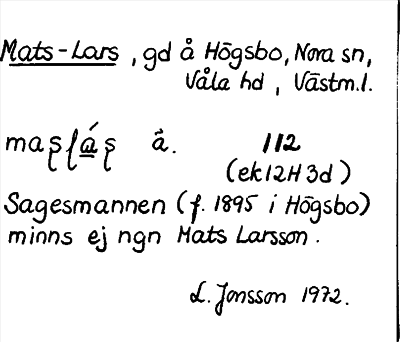 Mats-Lars, gd å Högsbo, Nora sn,
Våla hd, Västm.l.
maʂɭáʂ å. 112
(ek12H3d)
Sagesmannen (f. 1895 i Högsbo)
minns ej ngn Mats Larsson.
L. Jonsson 1972.